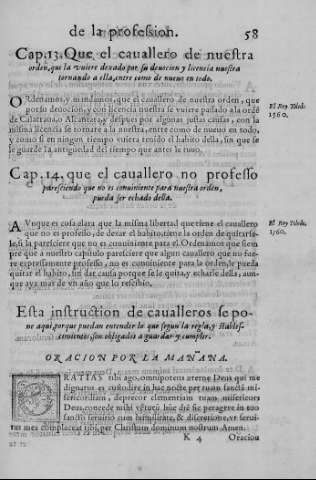 de la profession. 58
Cap.13. Que el cauallero de nuestra
orden, que la vuiere dexado por su deuocion y licencia nuestra
tornando a ella, entre como de nueuo en todo.
ORdenamos, y mandamos, que el cauallero de nuestra orden, que
por su deuocion, y con licencia nuestra se vuiere passado a la ordē
de Calatraua, o Alcantara, y despues por algunas justas causas, con la
misma licencia se tornare a la nuestra, entre como de nueuo en todo,
y como si en ningun tiempo vuiera tenido el habito della, sin que se
le guarde la antiguedad del tiempo que antes le tuuo.
El Rey Toledo.
1560.
Cap. 14. que el cauallero no professo
paresciendo que no es conuiniente para nuestra orden,
pueda ser echado della.
AVnque es cosa clara que la misma libertad que tiene el cauallero
que no es professo, de dexar el habito, tiene la orden de quitarse-
le, si la paresciere que no es conuiniente para el. Ordenamos que siem
pre que a nuestro capitulo paresciere que algun cauallero que no fue-
re expressamente professo, no es conuiniente para la orden, le pueda
quitar el habito, sin dar causa porque se lo quita, y echarle della, aun-
que aya mas de vn año que lo rescibio.
El Rey Toledo,
1560.
Esta instruction de caualleros se po-
ne aqui, porque puedan entender lo que segun la regla, y stables-
cimientos, son obligados a guardar y cumplir.
ORACION POR LA MAÑANA.
GRATIAS tibi ago, omnipotens aeterne Deus qui me
dignatus es custodire in hac nocte per tuam sanctā mi-
sericordiam, deprecor clementiam tuam misericors
Deus, concede mihi vēturū hūc diē sic peragere in tuo
sancto seruitio cum humilitate, & discretione, vt serui-
tus mea complaceat tibi, per Christum dominum nostrum Amen.
K 4 Oracion